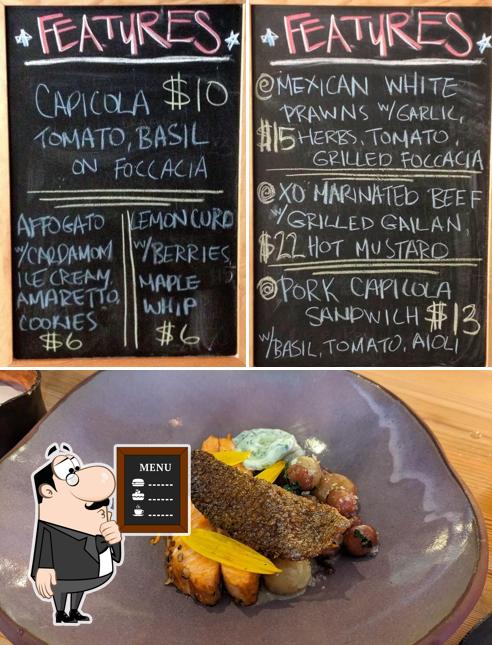 FEATURES
CAPICOLA $10
TOMATO, BASIL
ON FOCCACIA
AFFOGATO
W/CARDAMOM
ICE CREAM,
AMARETTO,
COOKIES
$6
LEMON CURD
W/BERRIES,
MAPLE
WHIP
$6
FEATURES
MEXICAN WHITE
PRAWNS W/GARLIC,
$15 HERBS, TOMATO,
GRILLED FOCCACIA
XO MARINATED BEEF
W/GRILLED GAILAN,
$22 HOT MUSTARD
PORK CAPICOLA
SANDWICH $13
W/BASIL, TOMATO, AIOLI
MENU